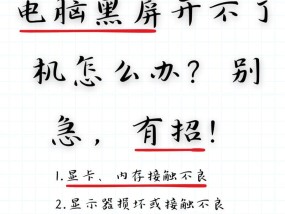 电脑黑屏开不了
机怎么办？别
急，有招!
1.显卡、内存接触不良
2.显示器损坏或接触不良